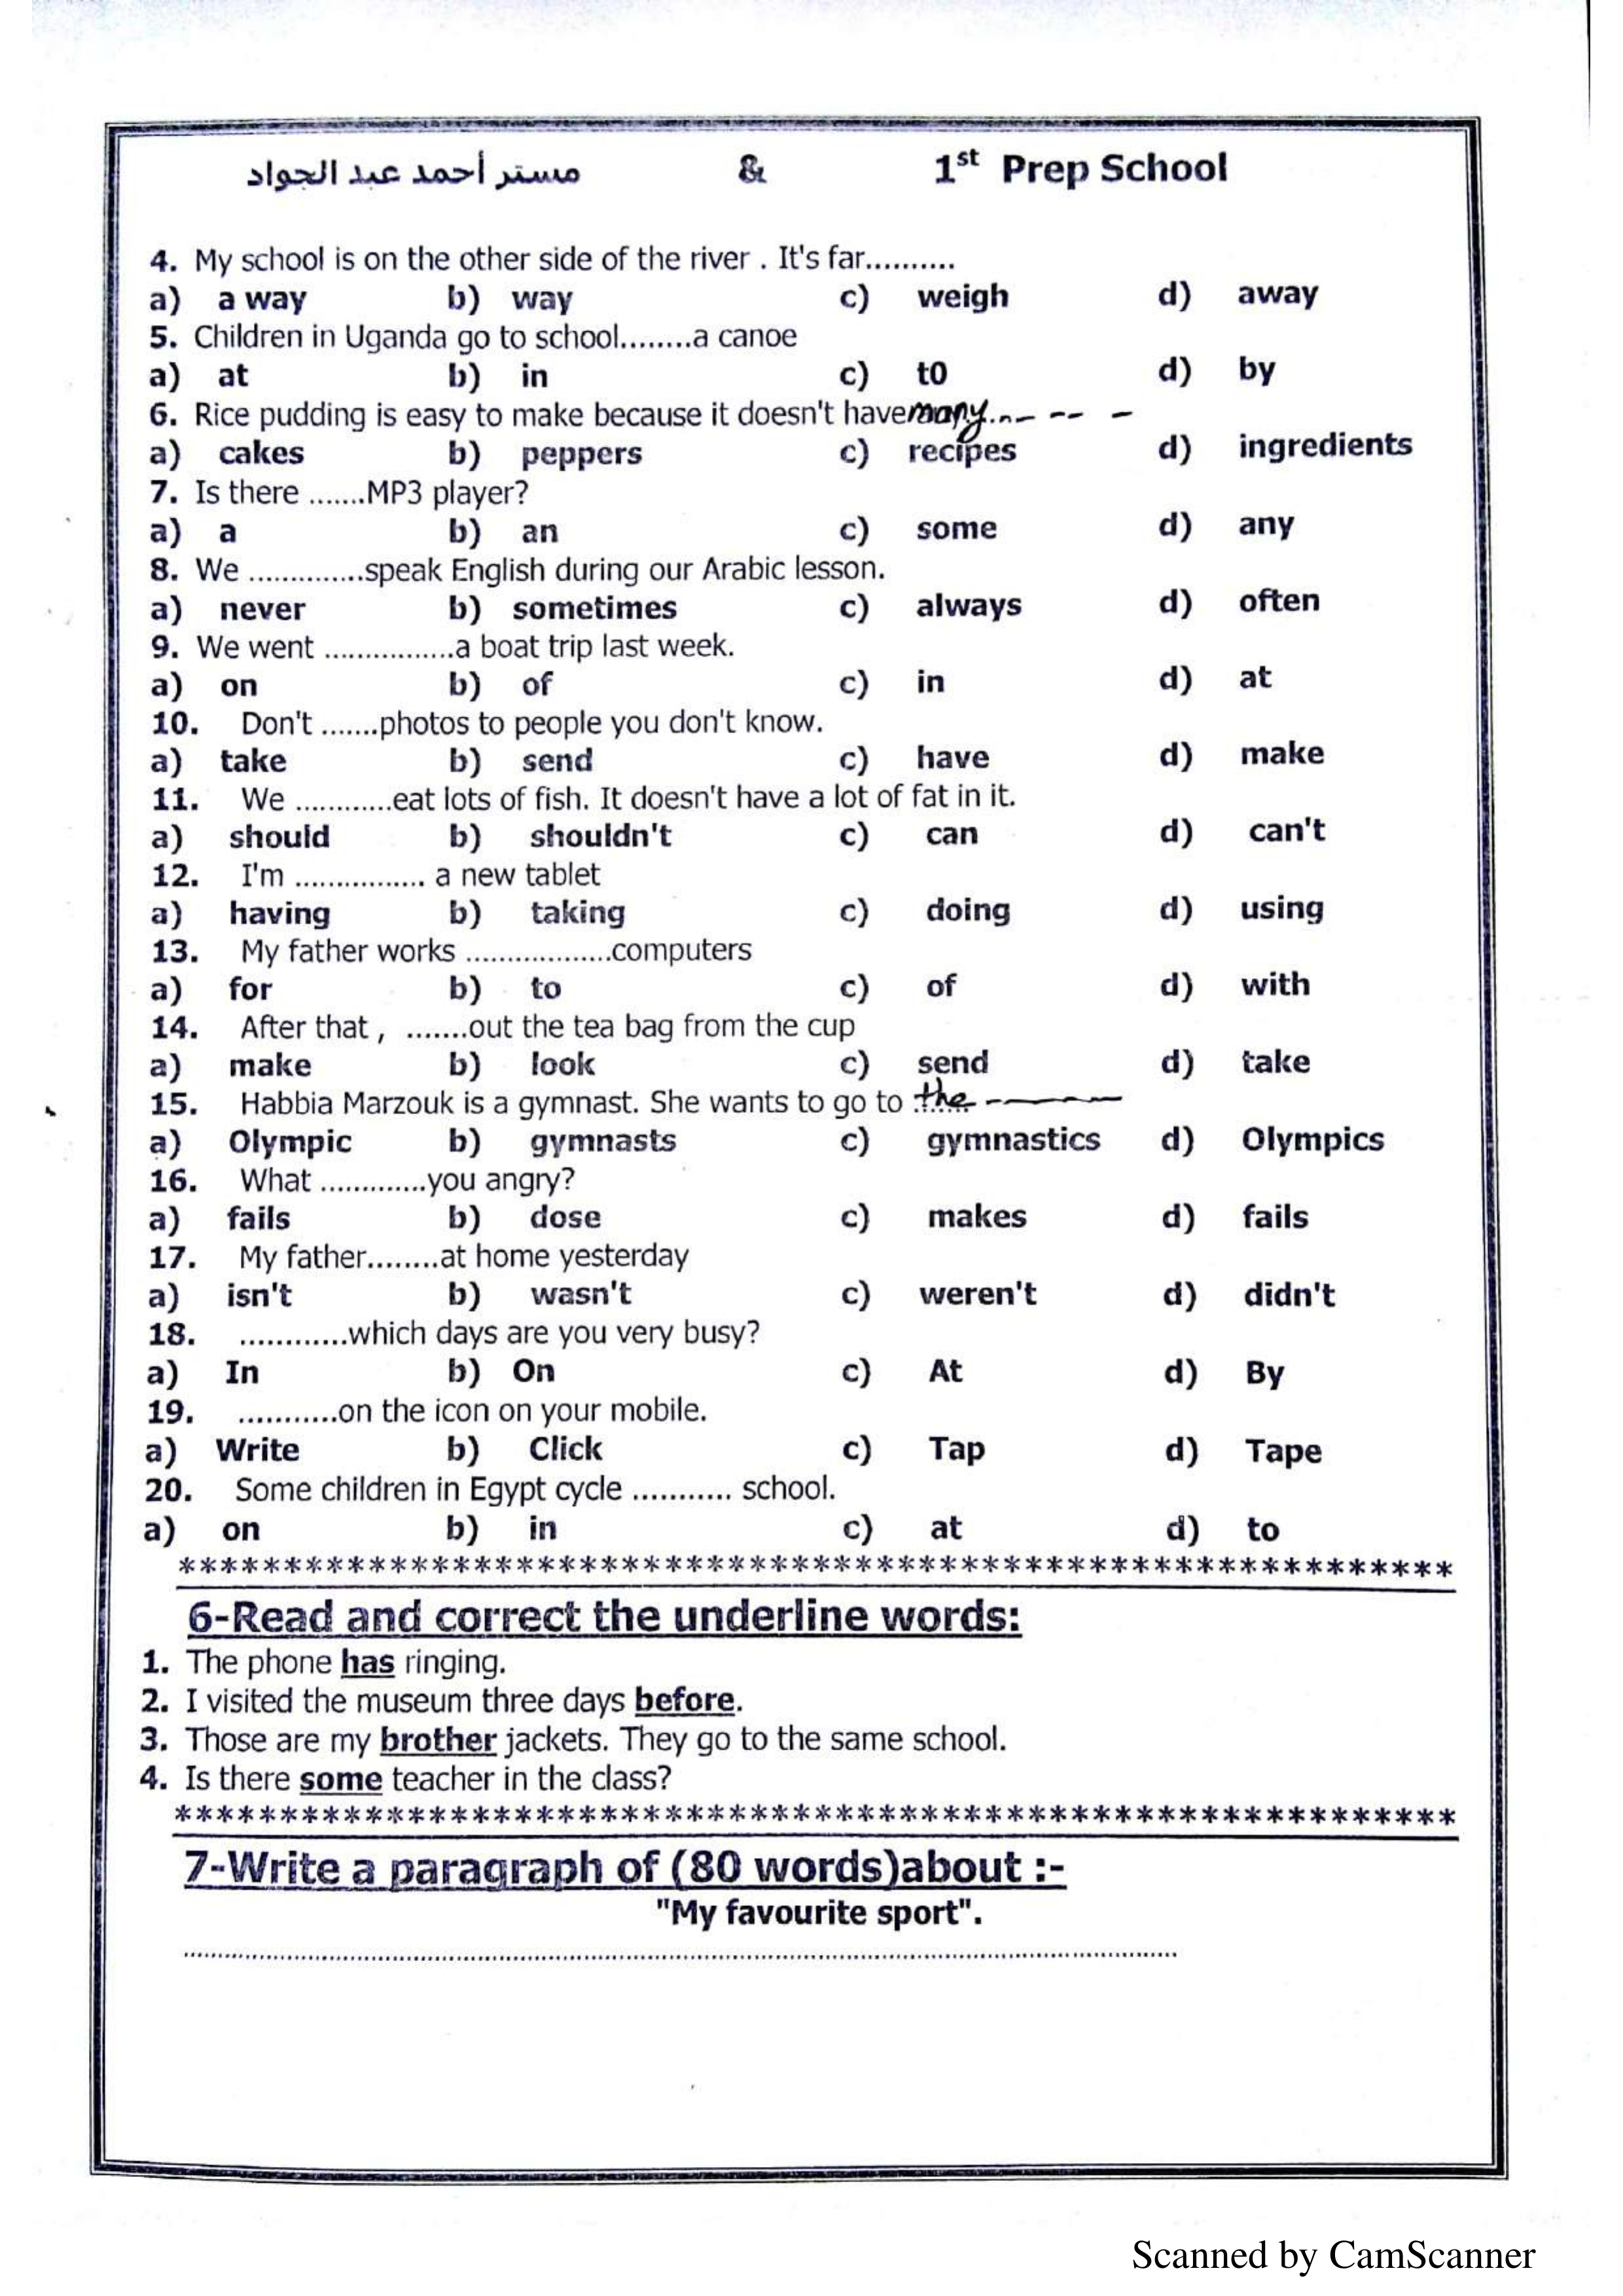 مستر أحمد عبد الجواد & 1st Prep School
4. My school is on the other side of the river . It's far..........
a) a way b) way c) weigh d) away
5. Children in Uganda go to school........a canoe
a) at b) in c) t0 d) by
6. Rice pudding is easy to make because it doesn't have many..-- -- -
a) cakes b) peppers c) recipes d) ingredients
7. Is there .......MP3 player?
a) a b) an c) some d) any
8. We .............speak English during our Arabic lesson.
a) never b) sometimes c) always d) often
9. We went ................a boat trip last week.
a) on b) of c) in d) at
10. Don't .......photos to people you don't know.
a) take b) send c) have d) make
11. We ............eat lots of fish. It doesn't have a lot of fat in it.
a) should b) shouldn't c) can d) can't
12. I'm ................ a new tablet
a) having b) taking c) doing d) using
13. My father works ..................computers
a) for b) to c) of d) with
14. After that , .......out the tea bag from the cup
a) make b) look c) send d) take
15. Habbia Marzouk is a gymnast. She wants to go to the -----
a) Olympic b) gymnasts c) gymnastics d) Olympics
16. What .............you angry?
a) fails b) dose c) makes d) fails
17. My father........at home yesterday
a) isn't b) wasn't c) weren't d) didn't
18. ............which days are you very busy?
a) In b) On c) At d) By
19. ...........on the icon on your mobile.
a) Write b) Click c) Tap d) Tape
20. Some children in Egypt cycle ........... school.
a) on b) in c) at d) to
************************************************************
6-Read and correct the underline words:
1. The phone has ringing.
2. I visited the museum three days before.
3. Those are my brother jackets. They go to the same school.
4. Is there some teacher in the class?
************************************************************
7-Write a paragraph of (80 words)about :-
"My favourite sport".
................................................................................
Scanned by CamScanner